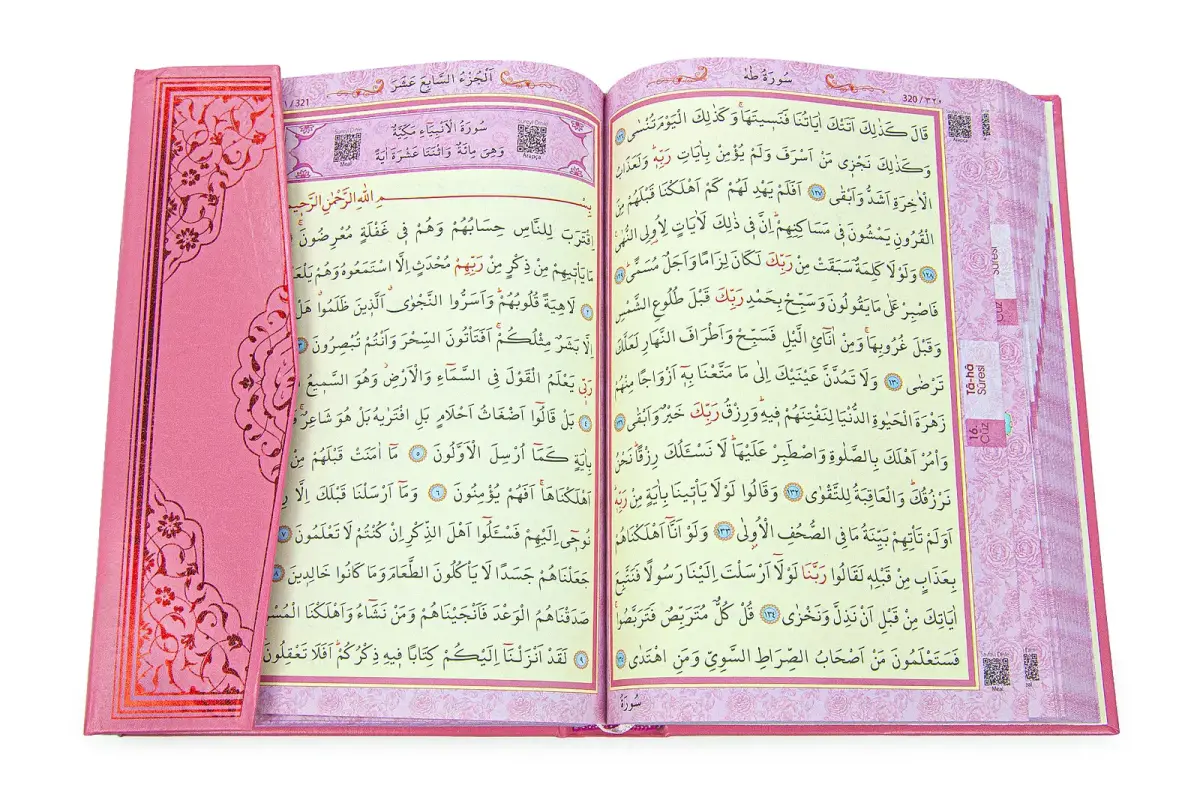 سُورَةُ طٰهٰ
320 / ٣٢٠
قَالَ كَذٰلِكَ اَتَتْكَ اٰيَاتُنَا فَنَسٖيتَهَاۚ وَكَذٰلِكَ الْيَوْمَ تُنْسٰى ١٢٦
وَكَذٰلِكَ نَجْزٖى مَنْ اَسْرَفَ وَلَمْ يُؤْمِنْ بِاٰيَاتِ رَبِّهٖۜ وَلَعَذَابُ
الْاٰخِرَةِ اَشَدُّ وَاَبْقٰى ١٢٧ اَفَلَمْ يَهْدِ لَهُمْ كَمْ اَهْلَكْنَا قَبْلَهُمْ مِنَ
الْقُرُونِ يَمْشُونَ فٖى مَسَاكِنِهِمْۜ اِنَّ فٖى ذٰلِكَ لَاٰيَاتٍ لِاُولِى النُّهٰى
١٢٨ وَلَوْلَا كَلِمَةٌ سَبَقَتْ مِنْ رَبِّكَ لَكَانَ لِزَامًا وَاَجَلٌ مُسَمًّىۜ ١٢٩
فَاصْبِرْ عَلٰى مَا يَقُولُونَ وَسَبِّحْ بِحَمْدِ رَبِّكَ قَبْلَ طُلُوعِ الشَّمْسِ
وَقَبْلَ غُرُوبِهَاۚ وَمِنْ اٰنَآئِ الَّيْلِ فَسَبِّحْ وَاَطْرَافَ النَّهَارِ لَعَلَّكَ
تَرْضٰى ١٣٠ وَلَا تَمُدَّنَّ عَيْنَيْكَ اِلٰى مَا مَتَّعْنَا بِهٖٓ اَزْوَاجًا مِنْهُمْ
زَهْرَةَ الْحَيٰوةِ الدُّنْيَا لِنَفْتِنَهُمْ فٖيهِۜ وَرِزْقُ رَبِّكَ خَيْرٌ وَاَبْقٰى ١٣١
وَأْمُرْ اَهْلَكَ بِالصَّلٰوةِ وَاصْطَبِرْ عَلَيْهَاۜ لَا نَسْـَٔلُكَ رِزْقًاۜ نَحْنُ
نَرْزُقُكَۜ وَالْعَاقِبَةُ لِلتَّقْوٰى ١٣٢ وَقَالُوا لَوْلَا يَأْتٖينَا بِاٰيَةٍ مِنْ رَبِّهٖۜ
اَوَلَمْ تَأْتِهِمْ بَيِّنَةُ مَا فِى الصُّحُفِ الْاُولٰى ١٣٣ وَلَوْ اَنَّٓا اَهْلَكْنَاهُمْ
بِعَذَابٍ مِنْ قَبْلِهٖ لَقَالُوا رَبَّنَا لَوْلَٓا اَرْسَلْتَ اِلَيْنَا رَسُولًا فَنَتَّبِعَ
اٰيَاتِكَ مِنْ قَبْلِ اَنْ نَذِلَّ وَنَخْزٰى ١٣٤ قُلْ كُلٌّ مُتَرَبِّصٌ فَتَرَبَّصُواۚ
فَسَتَعْلَمُونَ مَنْ اَصْحَابُ الصِّرَاطِ السَّوِىِّ وَمَنِ اهْتَدٰى ١٣٥
سُورَةُ
Sûresi
Cüz
Tâ-hâ
Sûresi
16.
Cüz
Meal
اَلْجُزْءُ السَّابِعَ عَشَرَ
/ 321
سُورَةُ الْاَنْبِيَٓاءِ مَكِّيَّةٌ
وَهِىَ مِائَةٌ وَاثْنَتَا عَشْرَةَ اٰيَةً
Meal
Arapça
بِسْمِ اللّٰهِ الرَّحْمٰنِ الرَّحٖيمِ
اِقْتَرَبَ لِلنَّاسِ حِسَابُهُمْ وَهُمْ فٖى غَفْلَةٍ مُعْرِضُونَۚ
مَا يَأْتٖيهِمْ مِنْ ذِكْرٍ مِنْ رَبِّهِمْ مُحْدَثٍ اِلَّا اسْتَمَعُوهُ وَهُمْ
٢ لَاهِيَةً قُلُوبُهُمْۜ وَاَسَرُّوا النَّجْوٰىۗ اَلَّذٖينَ ظَلَمُواۗ هَلْ
اِلَّا بَشَرٌ مِثْلُكُمْۚ اَفَتَأْتُونَ السِّحْرَ وَاَنْتُمْ تُبْصِرُونَ ٣
رَبّٖى يَعْلَمُ الْقَوْلَ فِى السَّمَٓاءِ وَالْاَرْضِۘ وَهُوَ السَّمٖيعُ
٤ بَلْ قَالُٓوا اَضْغَاثُ اَحْلَامٍ بَلِ افْتَرٰيهُ بَلْ هُوَ شَاعِرٌۚ
بِاٰيَةٍ كَمَٓا اُرْسِلَ الْاَوَّلُونَ ٥ مَٓا اٰمَنَتْ قَبْلَهُمْ مِنْ
اَهْلَكْنَاهَاۚ اَفَهُمْ يُؤْمِنُونَ ٦ وَمَٓا اَرْسَلْنَا قَبْلَكَ اِلَّا
نُوحٖٓى اِلَيْهِمْ فَسْـَٔلُٓوا اَهْلَ الذِّكْرِ اِنْ كُنْتُمْ لَا تَعْلَمُونَ ٧
جَعَلْنَاهُمْ جَسَدًا لَا يَأْكُلُونَ الطَّعَامَ وَمَا كَانُوا خَالِدٖينَ ٨
صَدَقْنَاهُمُ الْوَعْدَ فَاَنْجَيْنَاهُمْ وَمَنْ نَشَٓاءُ وَاَهْلَكْنَا
٩ لَقَدْ اَنْزَلْنَٓا اِلَيْكُمْ كِتَابًا فٖيهِ ذِكْرُكُمْۜ اَفَلَا تَعْقِلُونَ